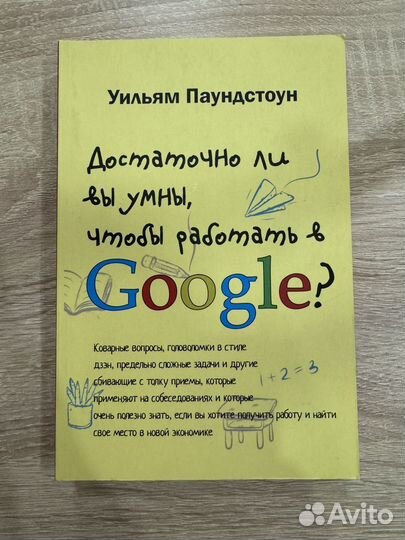 Уильям Паундстоун
Достаточно ли
вы умны,
чтобы работать в
Google?
Коварные вопросы, головоломки в стиле
дзэн, предельно сложные задачи и другие
сбивающие с толку приемы, которые
применяют на собеседованиях и которые
очень полезно знать, если вы хотите получить работу и найти
свое место в новой экономике
1+2=3
Avito